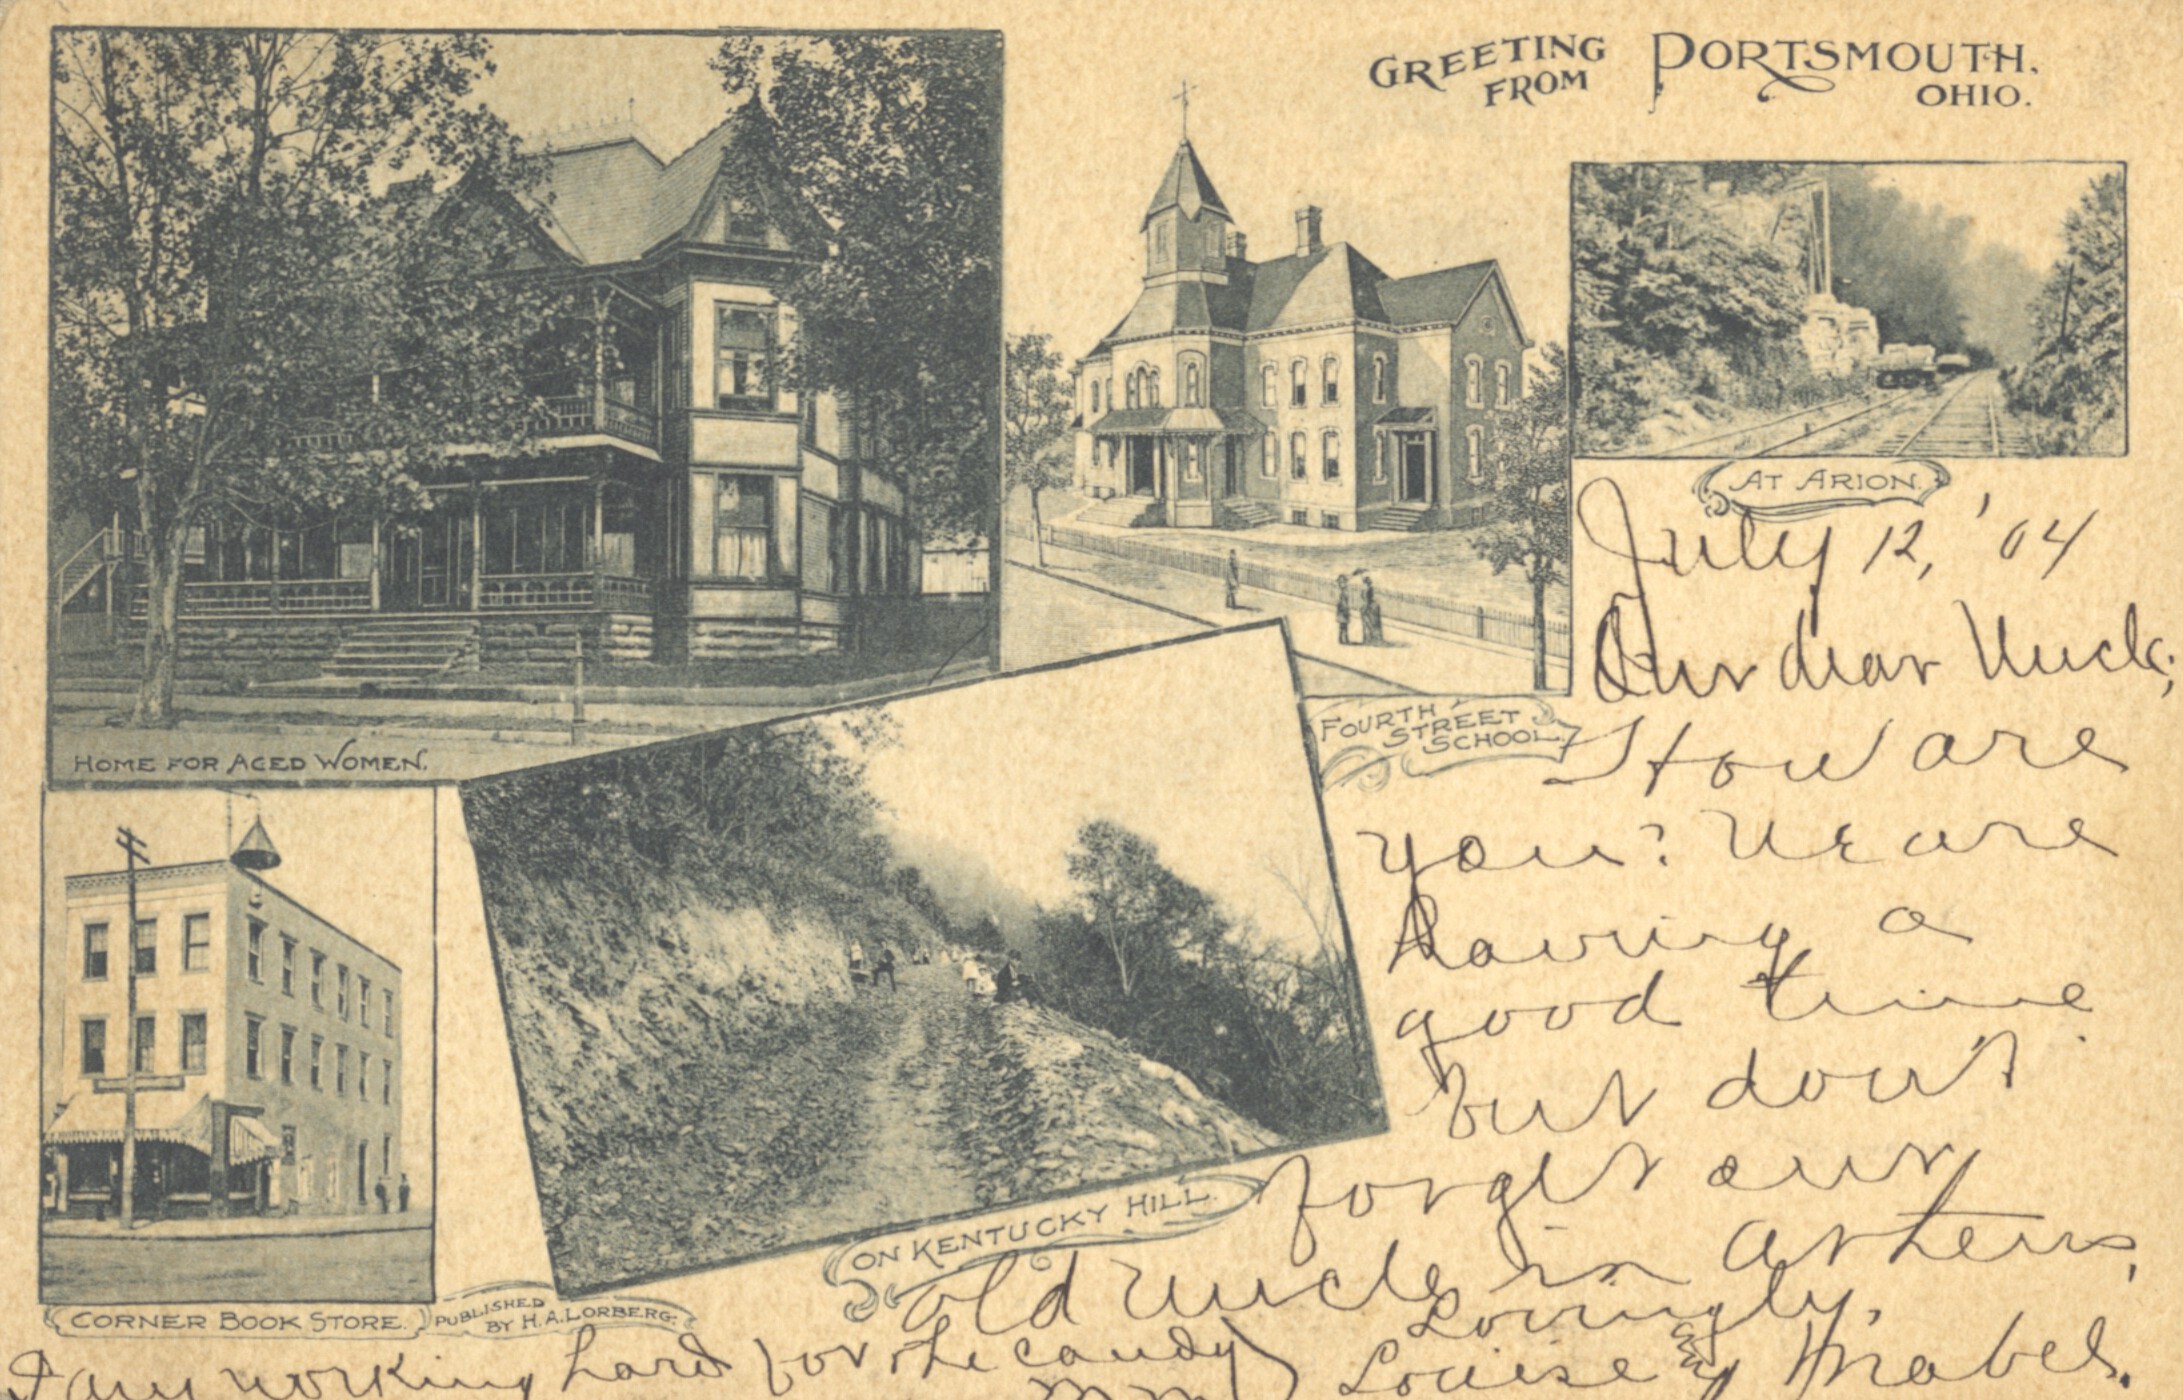 GREETING FROM PORTSMOUTH, OHIO.
AT ARION.
HOME FOR AGED WOMEN.
FOURTH STREET SCHOOL.
CORNER BOOK STORE.
PUBLISHED BY H. A. LORBERG.
ON KENTUCKY HILL.
July 12, '04
Our dear Uncle;
How are
you? We are
having a
good time
but don't
forget our
old uncle in Athens,
Lovingly,
Louise and Mabel.
I am working hard for the candy